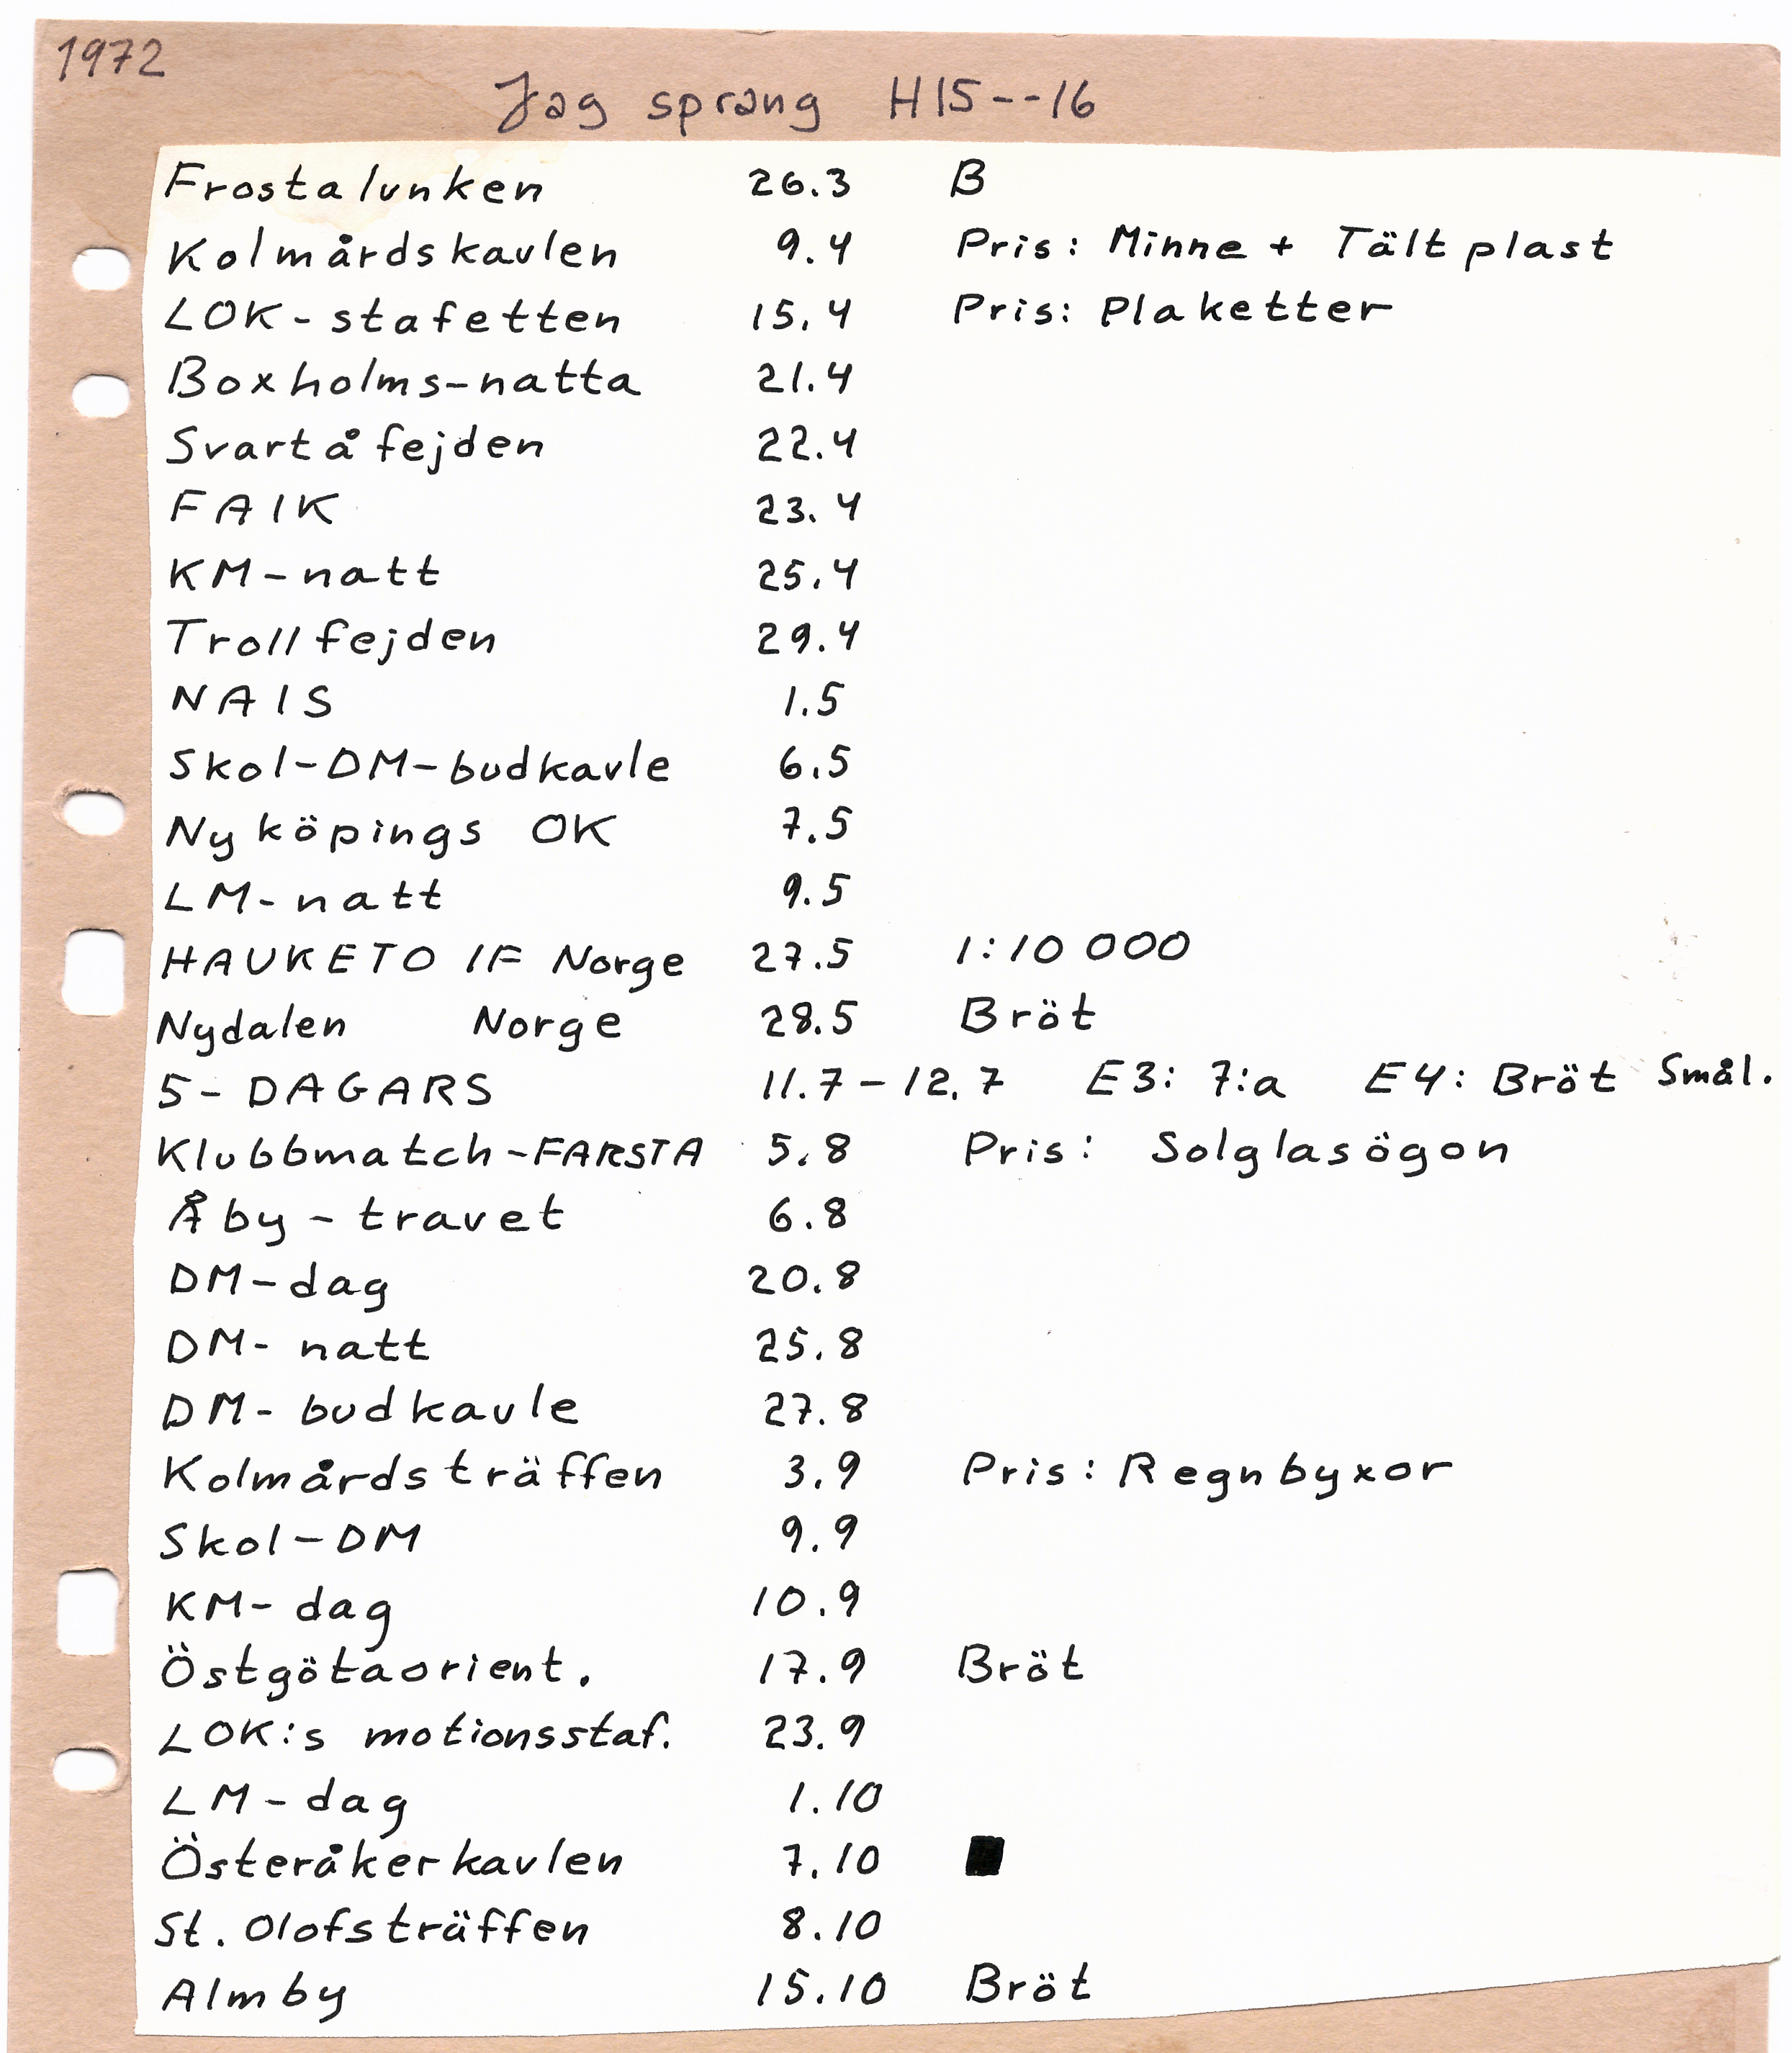 1972
Jag sprang H15--16
Frostalunken 26.3 B
Kolmårdskavlen 9.4 Pris: Minne + Tältplast
LOK-stafetten 15.4 Pris: Plaketter
Boxholms-natta 21.4
Svartåfejden 22.4
FAIK 23.4
KM-natt 25.4
Trollfejden 29.4
NAIS 1.5
Skol-DM-budkavle 6.5
Nyköpings OK 7.5
LM-natt 9.5
HAUKETO IF Norge 27.5 1:10 000
Nydalen Norge 28.5 Bröt
5-DAGARS 11.7-12.7 E3: 7:a E4: Bröt Smål.
Klubbmatch-FARSTA 5.8 Pris: Solglasögon
Åby-travet 6.8
DM-dag 20.8
DM-natt 25.8
DM-budkavle 27.8
Kolmårdsträffen 3.9 Pris: Regnbyxor
Skol-DM 9.9
KM-dag 10.9
Östgötaorient. 17.9 Bröt
LOK:s motionsstaf. 23.9
LM-dag 1.10
Österåkerkavlen 7.10
St. Olofsträffen 8.10
Almby 15.10 Bröt